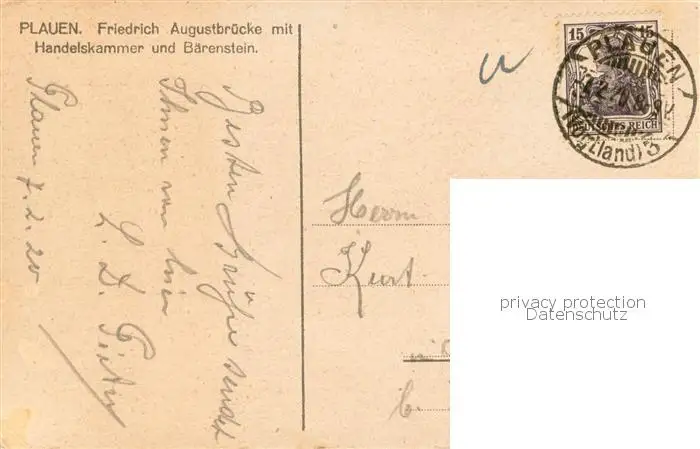 PLAUEN. Friedrich Augustbrücke mit
Handelskammer und Bärenstein.
Plauen 7.2.20
Besten Grüße sendet
Ihnen von hier
L. D.
Herrn
Kurt
15 15
REICH
PLAUEN
(Vogtland) 3
privacy protection
Datenschutz